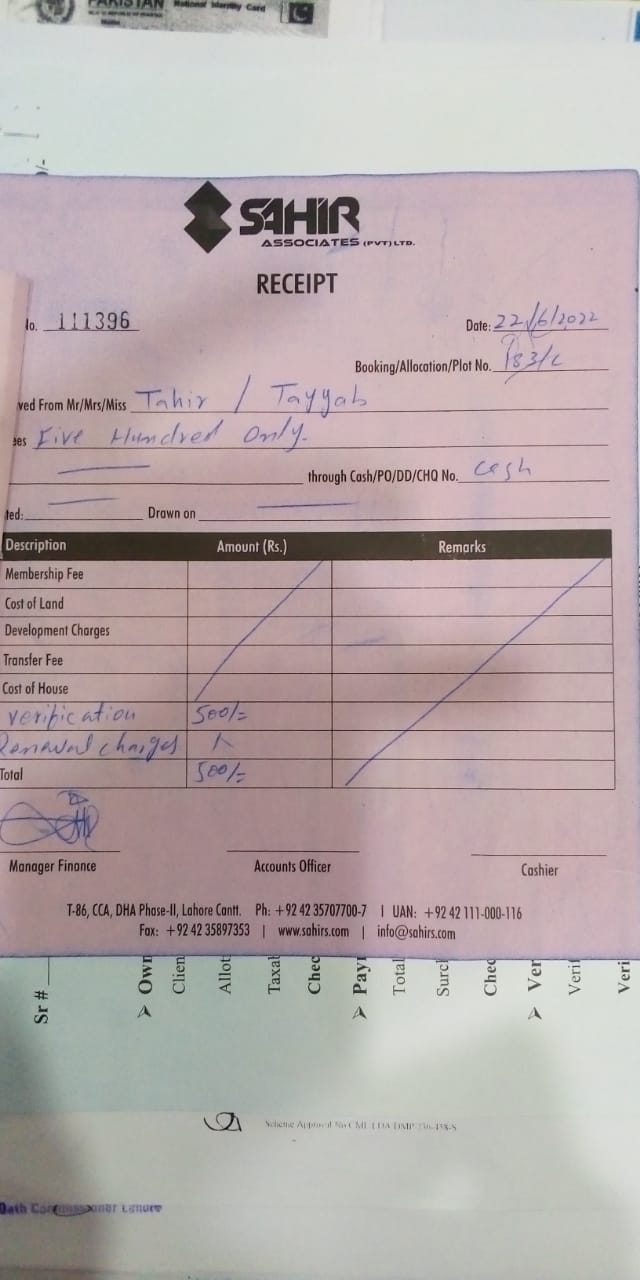 PAKISTAN National Identity Card
SAHIR
ASSOCIATES (PVT) LTD.
RECEIPT
No. 111396
Date: 22/6/2022
Booking/Allocation/Plot No. 183/C
ved From Mr/Mrs/Miss Tahir / Tayyab
ees Five Hundred Only.
through Cash/PO/DD/CHQ No. cash
ted: Drawn on
Description Amount (Rs.) Remarks
Membership Fee
Cost of Land
Development Charges
Transfer Fee
Cost of House
verification 500/=
Renewal charges
Total 500/=
Manager Finance Accounts Officer Cashier
T-86, CCA, DHA Phase-II, Lahore Cantt. Ph: +92 42 35707700-7 | UAN: +92 42 111-000-116
Fax: +92 42 35897353 | www.sahirs.com | info@sahirs.com
Sr #
Own
Clien
Allot
Taxal
Chec
Payı
Total
Surcl
Chec
Ver
Veri
Veri
Scheme Approval No
Oath Commissioner Lahore